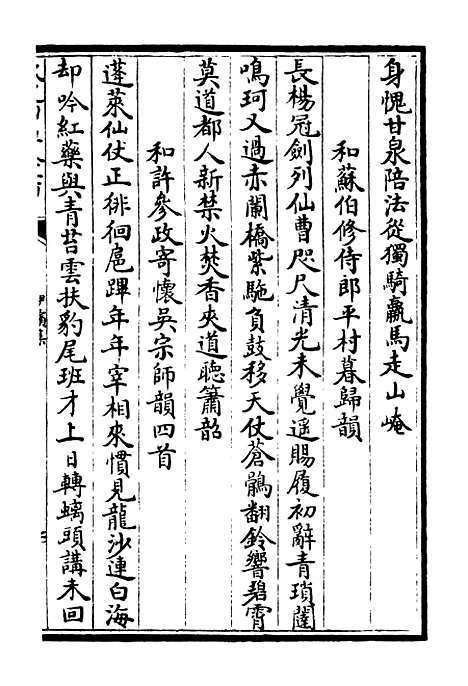 身愧甘泉陪法從獨騎羸馬走山崦
和蘇伯修侍郎平村暮歸韻
長楊冠劍列仙曹咫尺清光未覺遥賜履初辭青瑣闥
鳴珂又過赤闌橋紫駞負鼓移天仗蒼鶻翻鈴響碧霄
莫道都人新禁火焚香夾道聽簫韶
和許參政寄懷吳宗師韻四首
蓬萊仙仗正徘徊扈蹕年年宰相來慣見龍沙連白海
却吟紅藥與青苔雲扶豹尾班才上日轉螭頭講未回